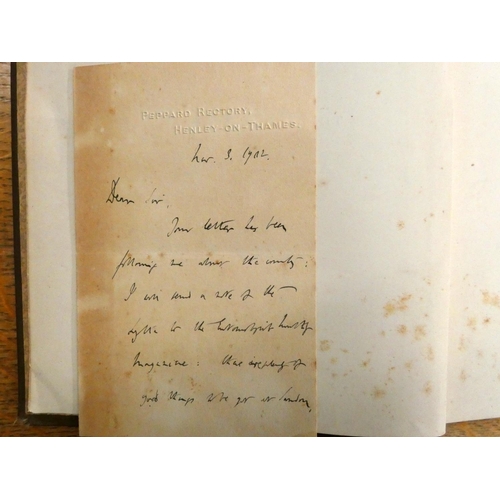 PEPPARD RECTORY,
HENLEY-ON-THAMES.
Nov. 3. 1902.
Dear Sir,
Your letter has been
following me about the country:
I will send a note of the
to the Entomologist's Monthly
Magazine:
good things to be got at